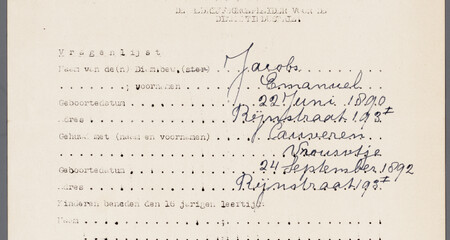 V r a g e n l i j s t
Naam van de(n) Diam.bew.(ster) Jacobs
" voornamen Emanuel
Geboortedatum 22 Juni 1890
Adres Rijnstraat 193 I
Gehuwd met (naam en voornamen)
Vrouwtje
Geboortedatum 24 September 1892
Adres Rijnstraat 193 I
Kinderen beneden den 16 jarigen leeftijd
Naam